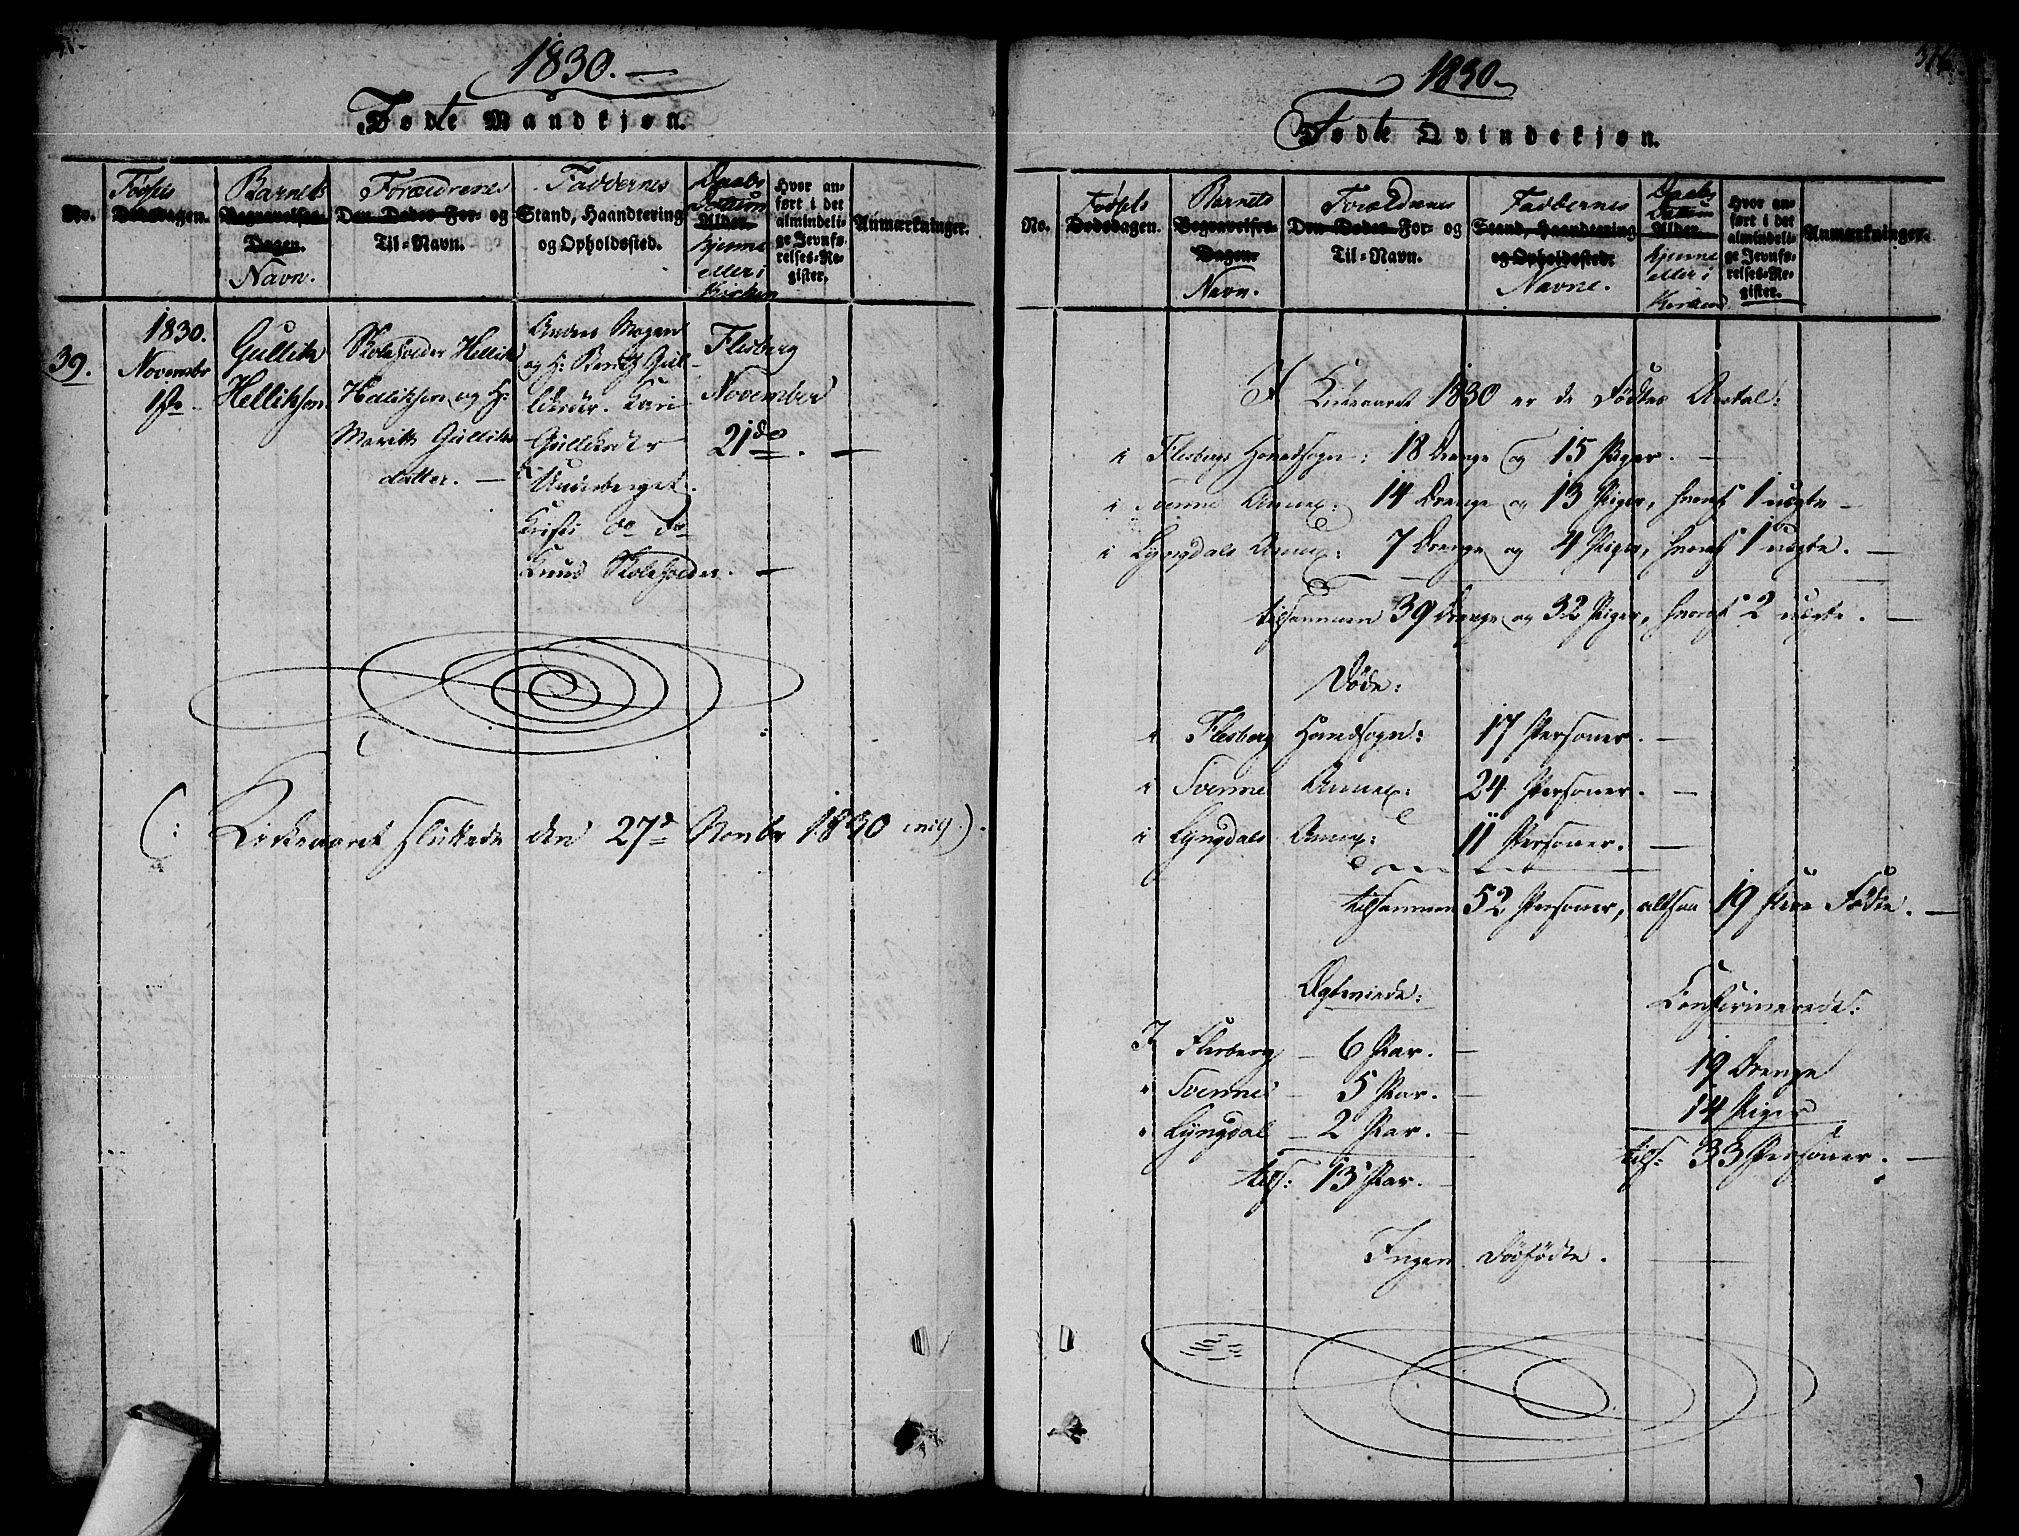 1830.
Føde Mandkjøn.
No.
Fødsels
Dødsdagen.
Barnets
Begravelses-
Dagen.
Navn.
Forældrenes
Den Dødes For- og
Til-Navn.
Faddernes
Stand, Haandtering
og Opholdssted.
Daabs
Datum
Alder.
hjemme
eller i
Kirken
Hvor an-
ført i det
almindeli-
ge Jevnfø-
relses-Re-
gister.
Anmærkninger.
39.
1830.
Novembr
1ste
Gullik
Helliksen
Skoleholder Hellik
Helliksen og H:
Marith Gulliks
datter.
Anders Mogen
og H: Berit Gul-
Kari
Gulliksdtr
Knud Skoleholder.
Flesberg
November
21de.
(: Kirkeaaret sluttede den 27de Novbr 1830 incl.).
1830.
Fødte Qvindekjøn.
No.
Fødsels
Dødsdagen.
Barnets
Begravelses-
Dagen.
Navn.
Forældrenes
Den Dødes For- og
Til-Navn.
Faddernes
Stand, Haandtering
og Opholdssted.
Navne.
Daabs
Datum
Alder.
hjemme
eller i
Kirken
Hvor an-
ført i det
almindeli-
ge Jevnfø-
relses-Re-
gister.
Anmærkninger.
I Kirkeaaret 1830 er de Fødtes Antal:
i Flesbergs Hovedsogn: 18 Drenge og 15 Piger.
i Svenne Annex: 14 Drenge og 13 Piger, hvoraf 1 uægte
i Lyngdals Annex: 7 Drenge og 4 Piger, hvoraf 1 uægte.
tilsammen 39 Drenge og 32 Piger, hvoraf 2 uægte.
Døde:
i Flesberg Hovedsogn: 17 Personer.
i Svenne Annex: 24 Personer.
i Lyngdals Annex: 11 Personer.
tilsammen 52 Personer, altsaa 19 flere Fødte.
Ægteviede:
I Flesberg 6 Par.
" Svenne 5 Par.
" Lyngdal 2 Par.
tils: 13 Par.
Confirmerede:
19 Drenge
14 Piger
tils: 33 Personer.
Ingen Dødfødte.